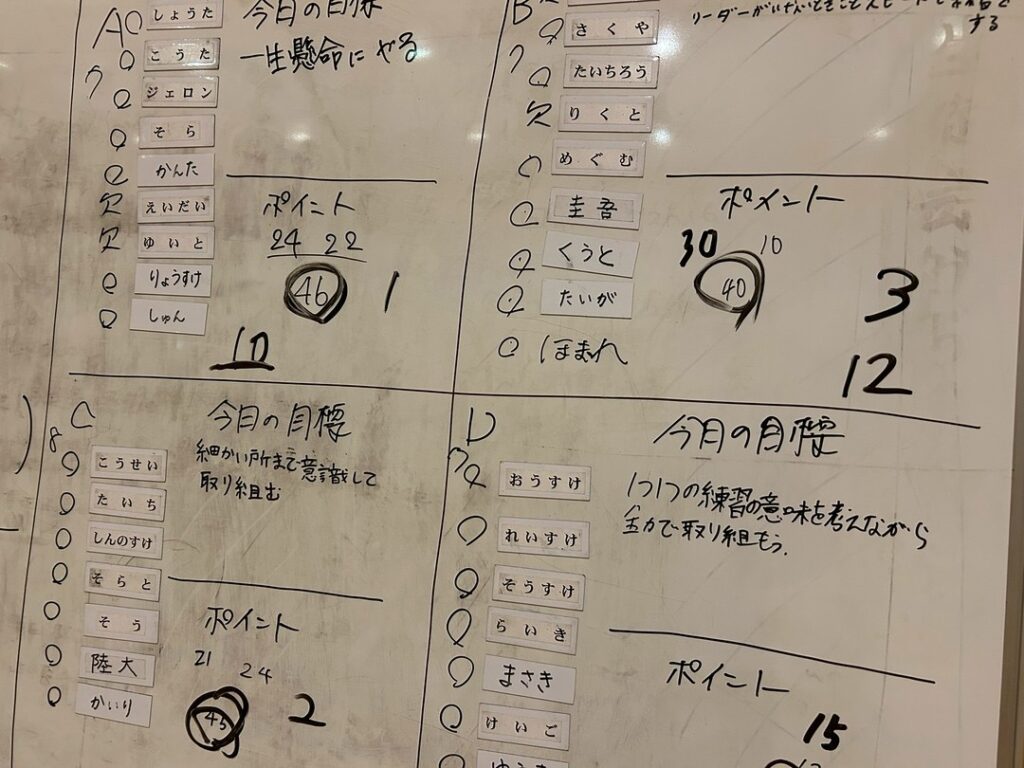 A
しょうた
こうた
ジェロン
そら
かんた
欠 えいだい
欠 ゆいと
りょうすけ
しゅん
今日の目標
一生懸命にやる
ポイント
24 22
46
1
10
B
さくや
たいちろう
欠 りくと
めぐむ
圭吾
くうと
たいが
ほまれ
する
ポイント
30 10
40
3
12
C
8
こうせい
たいち
しんのすけ
そらと
そう
陸大
かいり
今日の目標
細かい所まで意識して
取り組む
ポイント
21 24
45
2
D
おうすけ
れいすけ
そうすけ
らいき
まさき
けいご
今日の目標
1つ1つの練習の意味を考えながら
全力で取り組もう.
ポイント
15